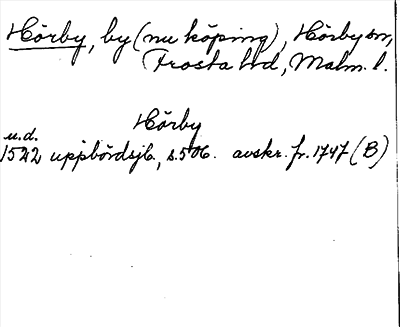 Hörby, by (nu köping), Hörby sn,
Frosta hd, Malm. l.
Hörby
u.d.
1522 uppbördsjb, s. 506. avskr. fr. 1747 (B)